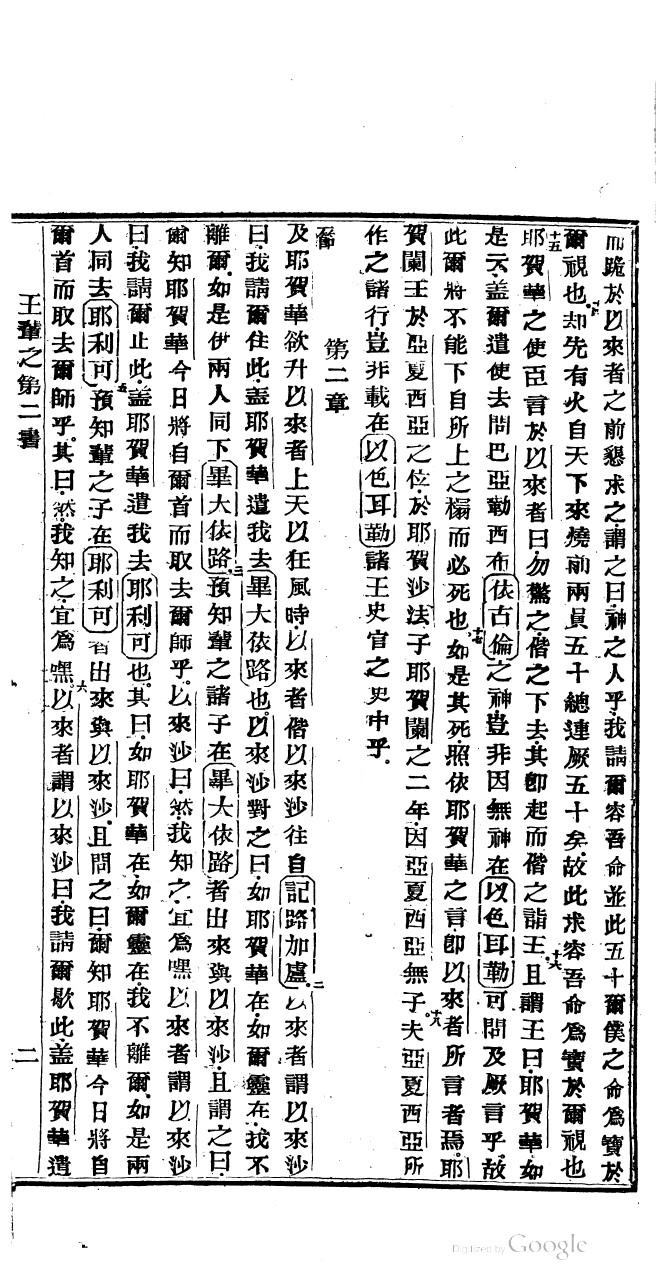 而跪於以來者之前懇求之謂之曰神之人乎我請爾容吾命並此五十爾僕之命爲寶於
爾視也十四却先有火自天下來燒前兩員五十總連厥五十矣故此求容吾命爲寶於爾視也
十五耶賀華之使臣言於以來者曰勿驚之偕之下去其即起而偕之詣王十六且謂王曰耶賀華如
是云蓋爾遣使去問巴亞勒西布依古倫之神豈非因無神在以色耳勒可問及厥言乎故
此爾將不能下自所上之榻而必死也十七如是其死照依耶賀華之言即以來者所言者焉耶
賀蘭王於亞夏西亞之位於耶賀沙法子耶賀蘭之二年因亞夏西亞無子十八夫亞夏西亞所
作之諸行豈非載在以色耳勒諸王史官之史中乎
第二章
一節
及耶賀華欲升以來者上天以狂風時以來者偕以來沙往自記路加盧二以來者謂以來沙
曰我請爾住此蓋耶賀華遣我去畢大依路也以來沙對之曰如耶賀華在如爾靈在我不
離爾如是伊兩人同下畢大依路三預知輩之諸子在畢大依路者出來與以來沙且謂之曰
爾知耶賀華今日將自爾首而取去爾師乎以來沙曰然我知之宜爲嘿四以來者謂以來沙
曰我請爾止此蓋耶賀華遣我去耶利可也其曰如耶賀華在如爾靈在我不離爾如是兩
人同去耶利可五預知輩之子在耶利可者出來與以來沙且問之曰爾知耶賀華今日將自
爾首而取去爾師乎其曰然我知之宜爲嘿六以來者謂以來沙曰我請爾歇此蓋耶賀華遣
王輩之第二書
二
Digitized by Google